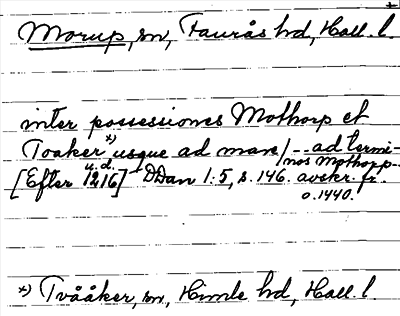 Morup, sn, Faurås hd, Hall. l.
inter possessiones Mothorp et
Toaker *) usque ad mare / -- ad termi-
nos Mothorp--
[Efter u.d. 1216] DDan 1:5, s. 146. avskr. fr.
o. 1440.
*) Tvååker, sn, Himle hd, Hall. l